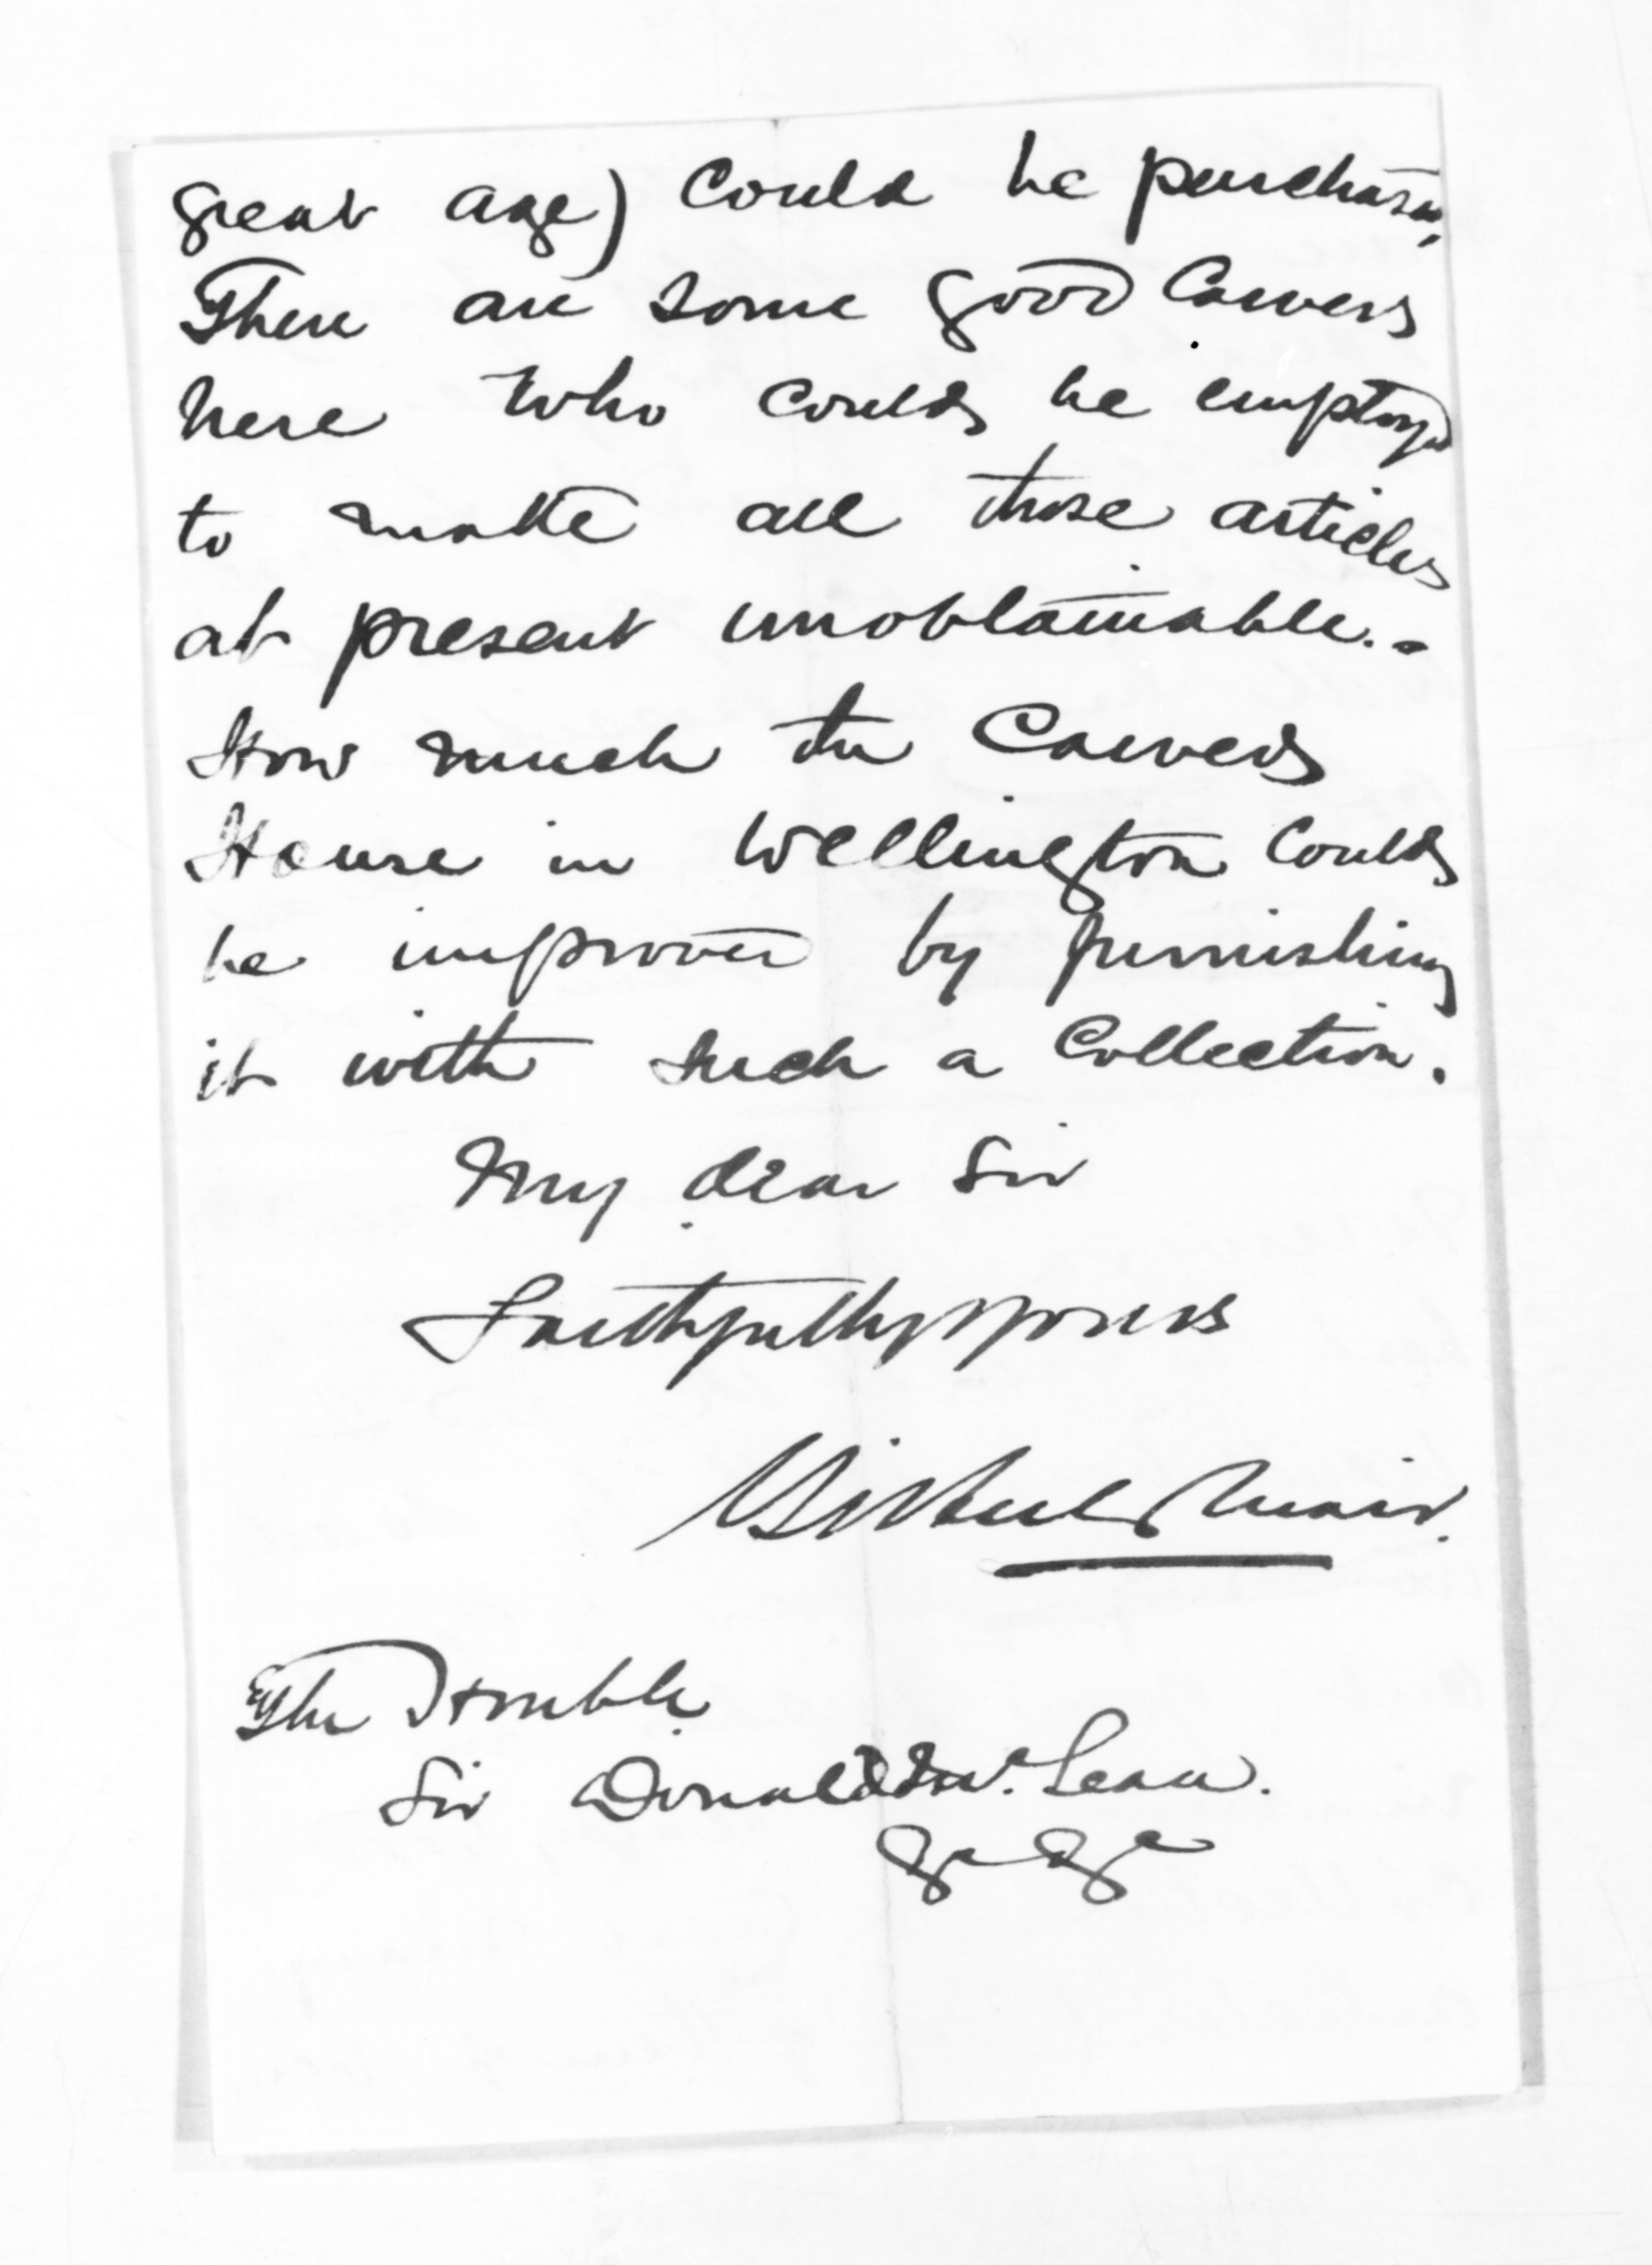 great age) could be purchased,
There are some good Carvers
here who could be employed
to make all those articles
at present unobtainable. -
How much the Carved
House in Wellington could
be improved by furnishing
it with such a Collection.
My dear Sir
Faithfully yours
Gilbert Mair.
The Honble.
Sir Donald McLean.
&c &c